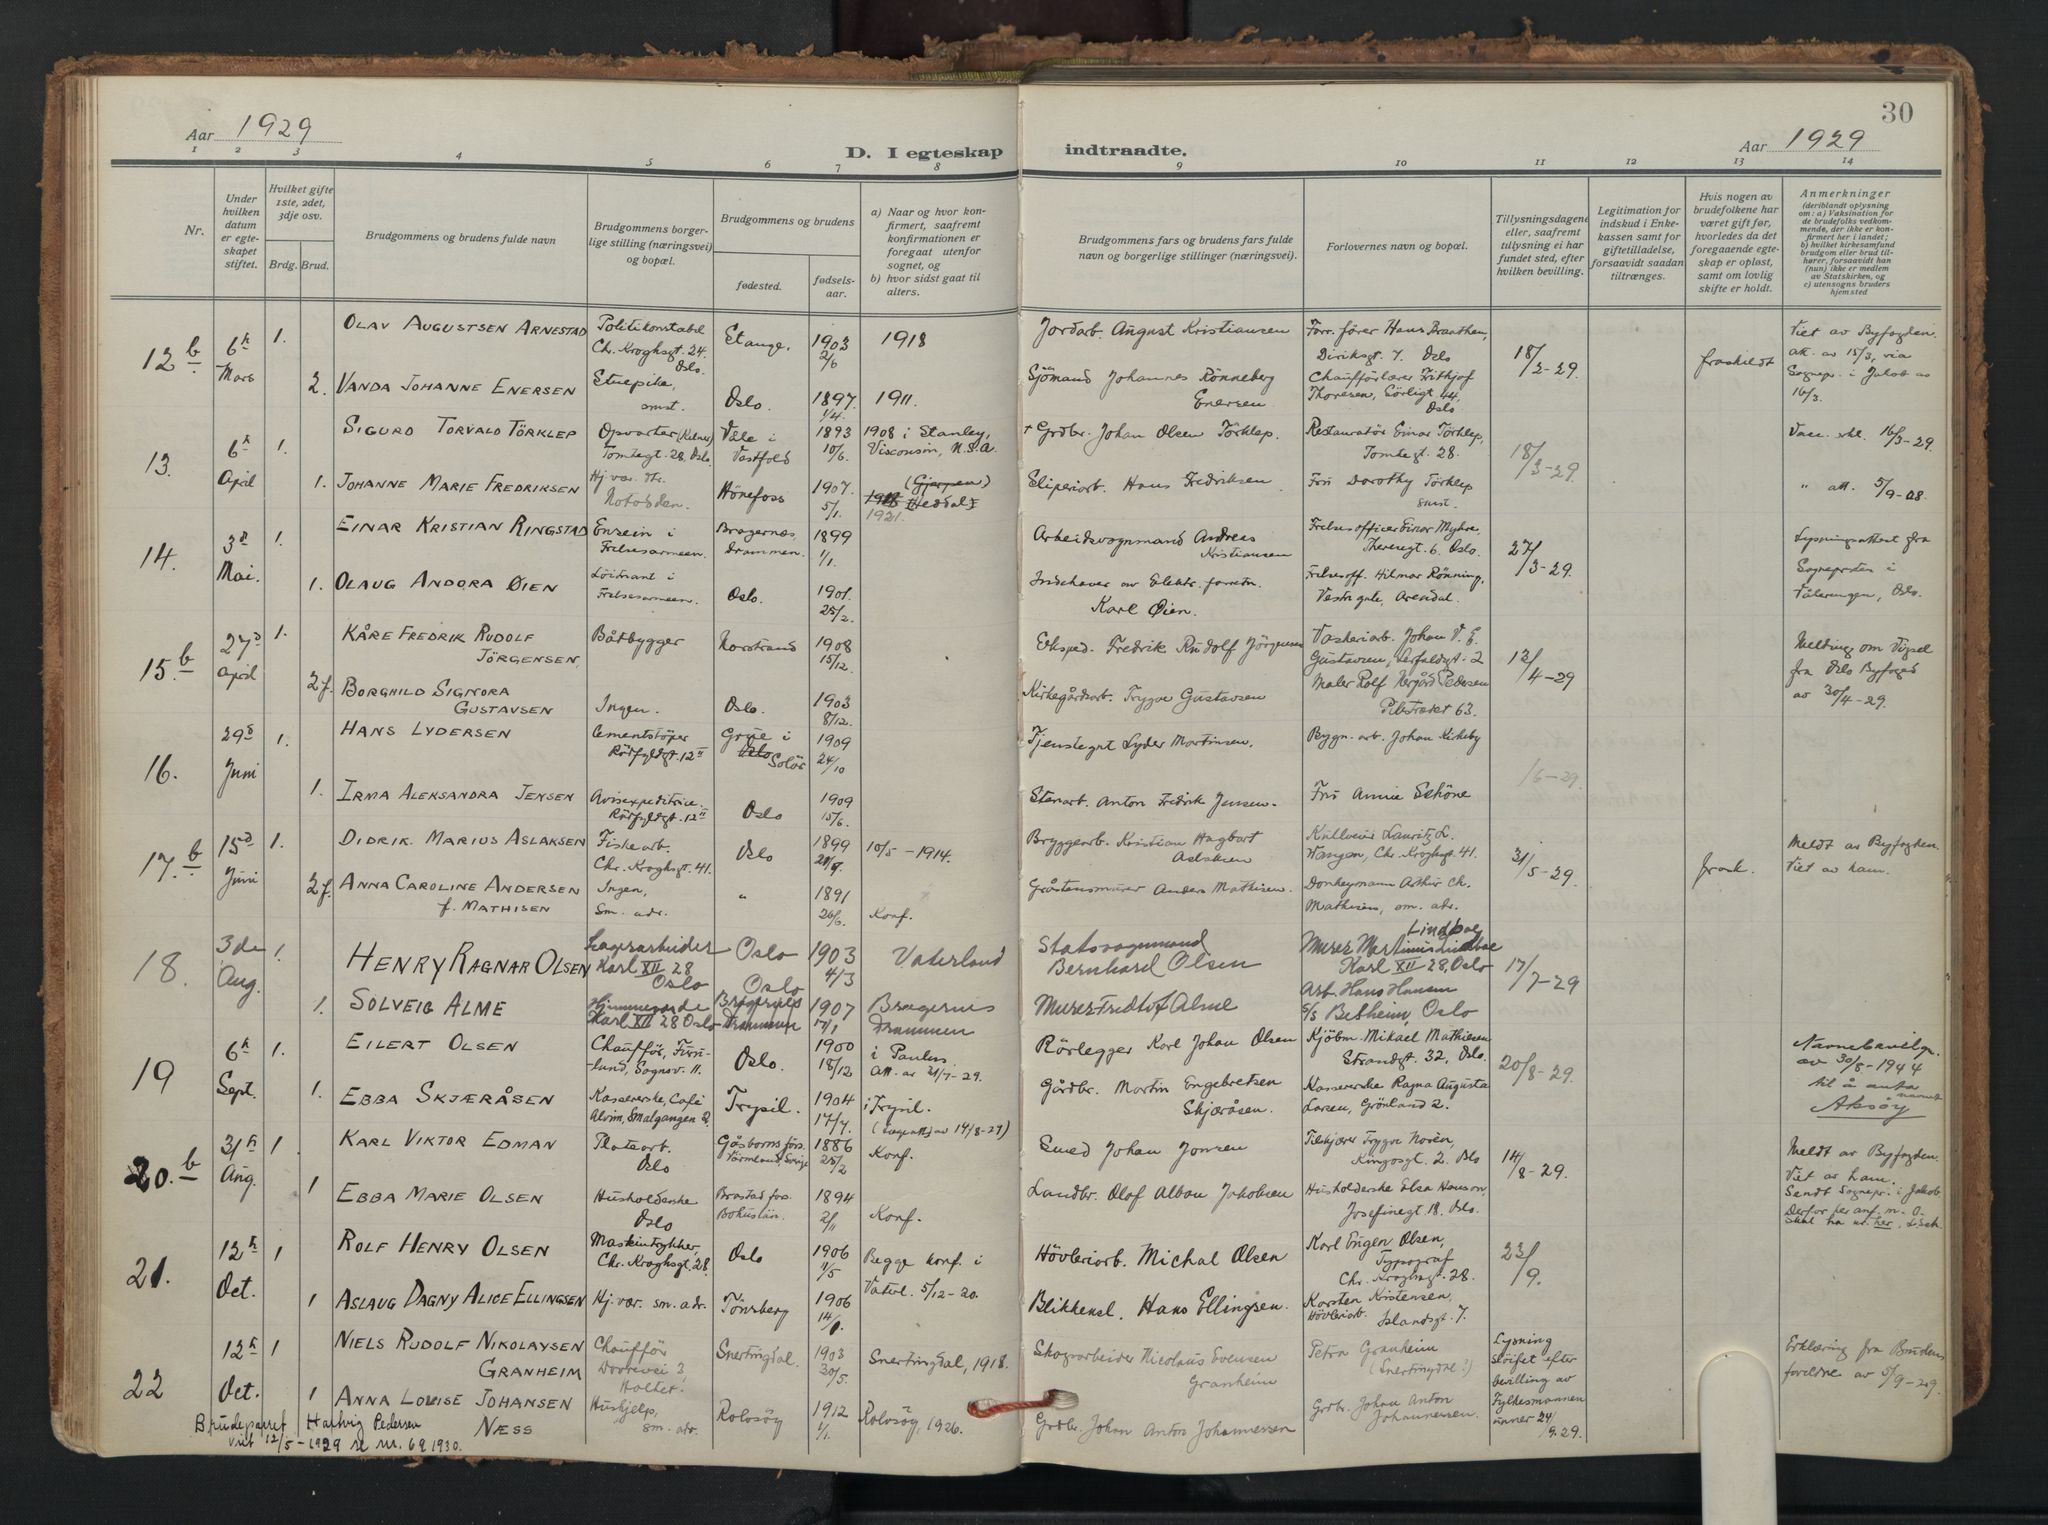 30
Aar 1929
D. I egteskap indtraadte.
Aar 1929
1 2 3 4 5 6 7 8 9 10 11 12 13 14
Nr.
Under hvilken datum er egteskapet stiftet.
Hvilket gifte 1ste, 2det, 3dje osv.
Brdg. Brud.
Brudgommens og brudens fulde navn
Brudgommens borgerlige stilling (næringsvei) og bopæl.
Brudgommens og brudens
fødested. fødselsaar.
a) Naar og hvor konfirmert, saafremt konfirmationen er foregaat utenfor sognet, og
b) hvor sidst gaat til alters.
Brudgommens fars og brudens fars fulde navn og borgerlige stillinger (næringsvei).
Forlovernes navn og bopæl.
Tillysningsdagene eller, saafremt tillysning ei har fundet sted, efter hvilken bevilling.
Legitimation for indskud i Enkekassen samt for giftetilladelse, forsaavidt saadan tiltrænges.
Hvis nogen av brudefolkene har været gift før, hvorledes da det foregaaende egteskap er opløst, samt om lovlig skifte er holdt.
Anmerkninger
(deriblandt oplysning om: a) Vaksination for de brudefolks vedkommende, der ikke er konfirmert her i landet;
b) hvilket kirkesamfund brudgom eller brud tilhører, forsaavidt han (hun) ikke er medlem av Statskirken, og
c) utensogns bruders hjemsted
12 b 6te Mars 1. OLAV AUGUSTSEN ARNESTAD Politikonstabel Chr. Kroghsgt. 24. Oslo. Stange. 1903 2/6 1918 Jordarb. August Kristiansen Forr. fører Hans Braathen, Diriksgt. 7. Oslo 18/2-29. fraskildt Viet av Byfogden.
2. VANDA JOHANNE ENERSEN Stuepike, smst. Oslo. 1897 1/4. 1911. Sjömand Johannes Rönneberg Enersen Chaufförlærer Frithjof Thoresen, Sörligt. 44, Oslo att. av 15/3, via Sognepr. i Jakob av 16/3.
13. 6te April 1. SIGURD TORVALD TÖRKLEP Opvarter (Kelner) Tomtegt. 28. Oslo. Våle i Vestfold 1893 10/6. 1908 i Stanley, Visconsin, N.S.A. † Grdbr. Johan Olsen Törklep. Restauratör Einar Törklep, Tomtegt. 28. 18/3-29 16/3-29.
1. JOHANNE MARIE FREDRIKSEN Hj. vær. Notodden. Hönefoss 1907. 5/1. (Gjerpen) (Heddal) 1921. Sliperiarb. Hans Fredriksen Frü Dorothy Törklep smst. " att. 5/9-08.
14. 3d Mai. 1. EINAR KRISTIAN RINGSTAD Ensein i Frelsesarmeen. Bragernes Drammen. 1899 1/1. Arbeidsvognmand Andreas Kristiansen Frelsesofficer Einar Myhre, Theresegt. 6. Oslo. 27/3-29. Lysningsattest fra
1. OLAUG ANDORA ØIEN Löitnant i Frelsesarmeen. Oslo. 1901. 25/2. Indehaver av Elektr. forretn. Karl Øien. Frelsesoff. Hilmar Rönning, Vestre gate, Arendal. Sognepresten i Vålerengen, Oslo.
15. b 27d April 1. KÅRE FREDRIK RUDOLF JÖRGENSEN. Båtbygger Norstrand 1908 15/12. Eksped. Fredrik Rudolf Jörgensen Vaskeriarb. Johan V. E. Gustavsen, 12/4-29 Melding om Vigsel
2 f. BORGHILD SIGNORA GUSTAVSEN Ingen. Oslo. 1903 8/12. Kirkegårdsarb. Trygve Gustavsen Maler Rolf Pedersen Pilestrædet 63. fra Oslo Byfogd av 30/4-29.
16. 29d Juni 1. HANS LYDERSEN Cementstöper Rödfyldgt. 12 II Grue i Solör 1909 24/10 Tjenstegut Lyder Martinsen. Bygn. arb. Johan Kirkeby 1/6-29.
1. IRMA ALEKSANDRA JENSEN Avisexpeditrice. Rödfyldgt. 12 II Oslo 1909 15/6. Stenarb. Anton Fredrik Jensen. Frü Annie Schöne
17. b 15d Juni 1. DIDRIK MARIUS ASLAKSEN Fiskearb. Chr. Kroghsgt. 41. Oslo 1899 10/5-1914. Bryggerarb. Kristian Hagbart Aslaksen Lauritz L. Wangen, Chr. Kroghsgt. 41. 31/5-29. frask. Meldt av Byfogden. Viet av ham.
2 f. ANNA CAROLINE ANDERSEN f. MATHISEN Ingen, Sm. adr. " 1891 26/6. Konf. Gråstensmurer Anders Mathisen. Donkeymann Arthur Ch. Mathisen, sm. adr.
18. 3de Aug. 1. HENRY RAGNAR OLSEN Lagerarbeider Karl XII 28 Oslo Oslo 1903 4/3 Vaterland Statsvognmand Bernhard Olsen Murer Martinius Lindbae Lindboe Karl XII 28, Oslo 17/7-29
1. SOLVEIG ALME Hjemmeværende Karl XII 28 Oslo Oslo Bragernes Drammen 1907 Bragernes Drammen Murer Fredtof Alme Arb. Hans Hansen S/S Betheim, Oslo
19 6te Sept. 1. EILERT OLSEN Chafför, Furulund, Sognsv. 11. Oslo. 1900 18/12 i Paulus. Att. av 31/7-29. Rörlegger Karl Johan Olsen Kjöbm. Mikael Mathiesen Strandgt. 32, Oslo. 20/8-29. Navnebevilgn. av 30/8-1944
1. EBBA SKJÆRÅSEN Kassererske, Café Alvim, Smalgangen 2. Trysil. 1904 17/7. i Trysil. Gårdbr. Martin Engebretsen Skjæråsen. Kassererske Ragna Augusta Larsen, Grönland 2. til å anta navnet Aksöy
20. b 31te Aug. 1 KARL VIKTOR EDMAN Platearb. Oslo Gåsborns förs. Värmland, Sverige 1886 25/2 Konf. Smed Johan Jonsen Trygve Norén, Kingosgt. 2. Oslo 14/8-29. Meldt av Byfogden. Viet av ham.
1 EBBA MARIE OLSEN Husholderske Oslo Brastad fors. Bohuslän. 1894 2/11 Konf. Landbr. Olof Alban Jakobsen Husholderske Elsa Hanson, Josefinegt. 18. Oslo. Sendt Sognepr. i Jakob. Derfor per anf. m. O. Skal ha nr. her,
21. 12te Oct. 1 ROLF HENRY OLSEN Maskintrykker, Chr. Kroghsgt. 28. Oslo 1906 11/5 Begge konf. i Hövleriarb. Michal Olsen Karl Eugen Olsen, Typograf Chr. Kroghsgt. 28. 23/9.
1 ASLAUG DAGNY ALICE ELLINGSEN Hj. vær. sm. adr. Tönsberg 1906 Vaterl. 5/12-20. Blikkensl. Hans Ellingsen. Karsten Kristensen, Hövleriarb. Islandsgt. 7.
22 12te Oct. 1 NIELS RUDOLF NIKOLAYSEN GRANHEIM Chafför Dovrevei 3, Holter. Snertingdal. 1903 20/5. Snertingdal, 1918. Skogsarbeider Nicolaus Evensen Granheim Petra Granheim (Snertingdal?) Lysning slöifet efter bevilling av Fylkesmannen unner 24/9. 29. Erklæring fra Brudens foreldre av 5/9-29.
1 ANNA LOUISE JOHANSEN NÆSS Hushjelp, sm. adr. Rolvsöy 1912 1/1. Rolvsöy, 1926. Grdbr. Johan Anton Johannessen Grdbr. Johan Anton Johannessen.
Brudeparret Hartvig Pedersen
viet 12/5-1929 se nr. 69 1930.